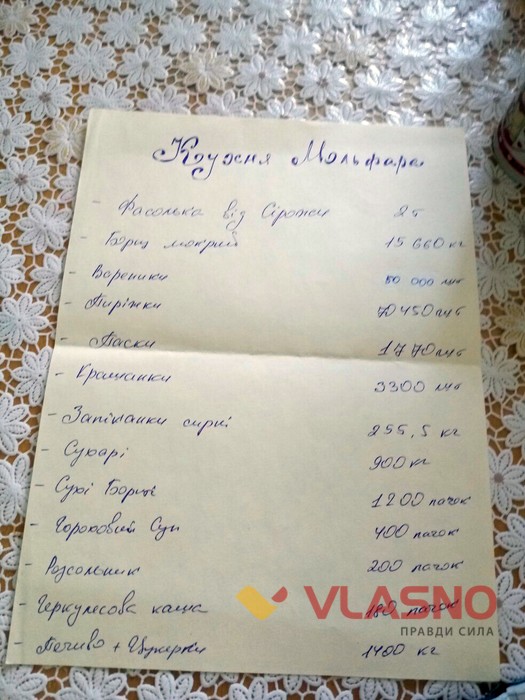 Кухня Мольфара
- Фасолька від Сірожи 2т
- Борщ мокрий 15 660 кг
- Вареники 50 000 шт
- Пиріжки 70450 шт
- Паски 1770 шт
- Крашанки 3300 шт
- Запіканки сирні 255,5 кг
- Сухарі 900 кг
- Сухі Борщі 1200 пачок
- Гороховий Суп 400 пачок
- Розсольник 200 пачок
- Геркулесова каша 180 пачок
- Печиво + Цукерки 1400 кг
VLASNO
ПРАВДИ СИЛА